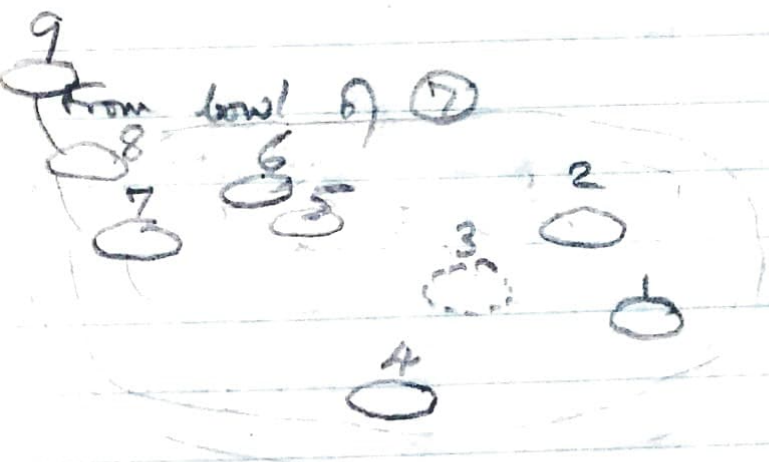 9
From bowl of 7
8
6
7
5
2
3
1
4